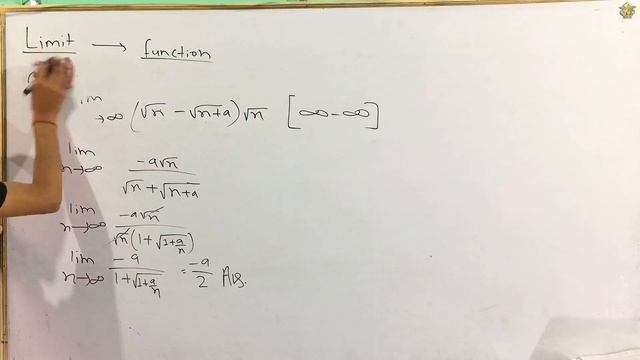 Limit → function
→∞ (√n − √n+a) √n [∞ − ∞]
lim n→∞ −a√n / √n + √n+a
lim n→∞ −a√n / √n (1 + √1+a/n)
lim n→∞ −a / 1+√1+a/n = −a/2 Ans.